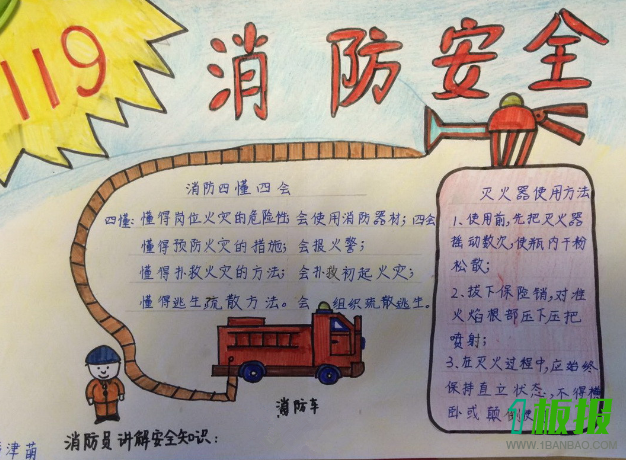 119
消防安全
消防四懂四会
四懂：懂得岗位火灾的危险性 会使用消防器材；四会
懂得预防火灾的措施；会报火警；
懂得扑救火灾的方法；会扑救初起火灾；
懂得逃生疏散方法。会 组织疏散逃生。
灭火器使用方法
1、使用前，先把灭火器
摇动数次，使瓶内干粉
松散；
2、拔下保险销，对准
火焰根部压下压把
喷射；
3、在灭火过程中，应始终
保持直立状态，不得横
卧或颠倒使
消防车
消防员讲解安全知识：
津萌
1板报
WWW.1BANBAO.COM